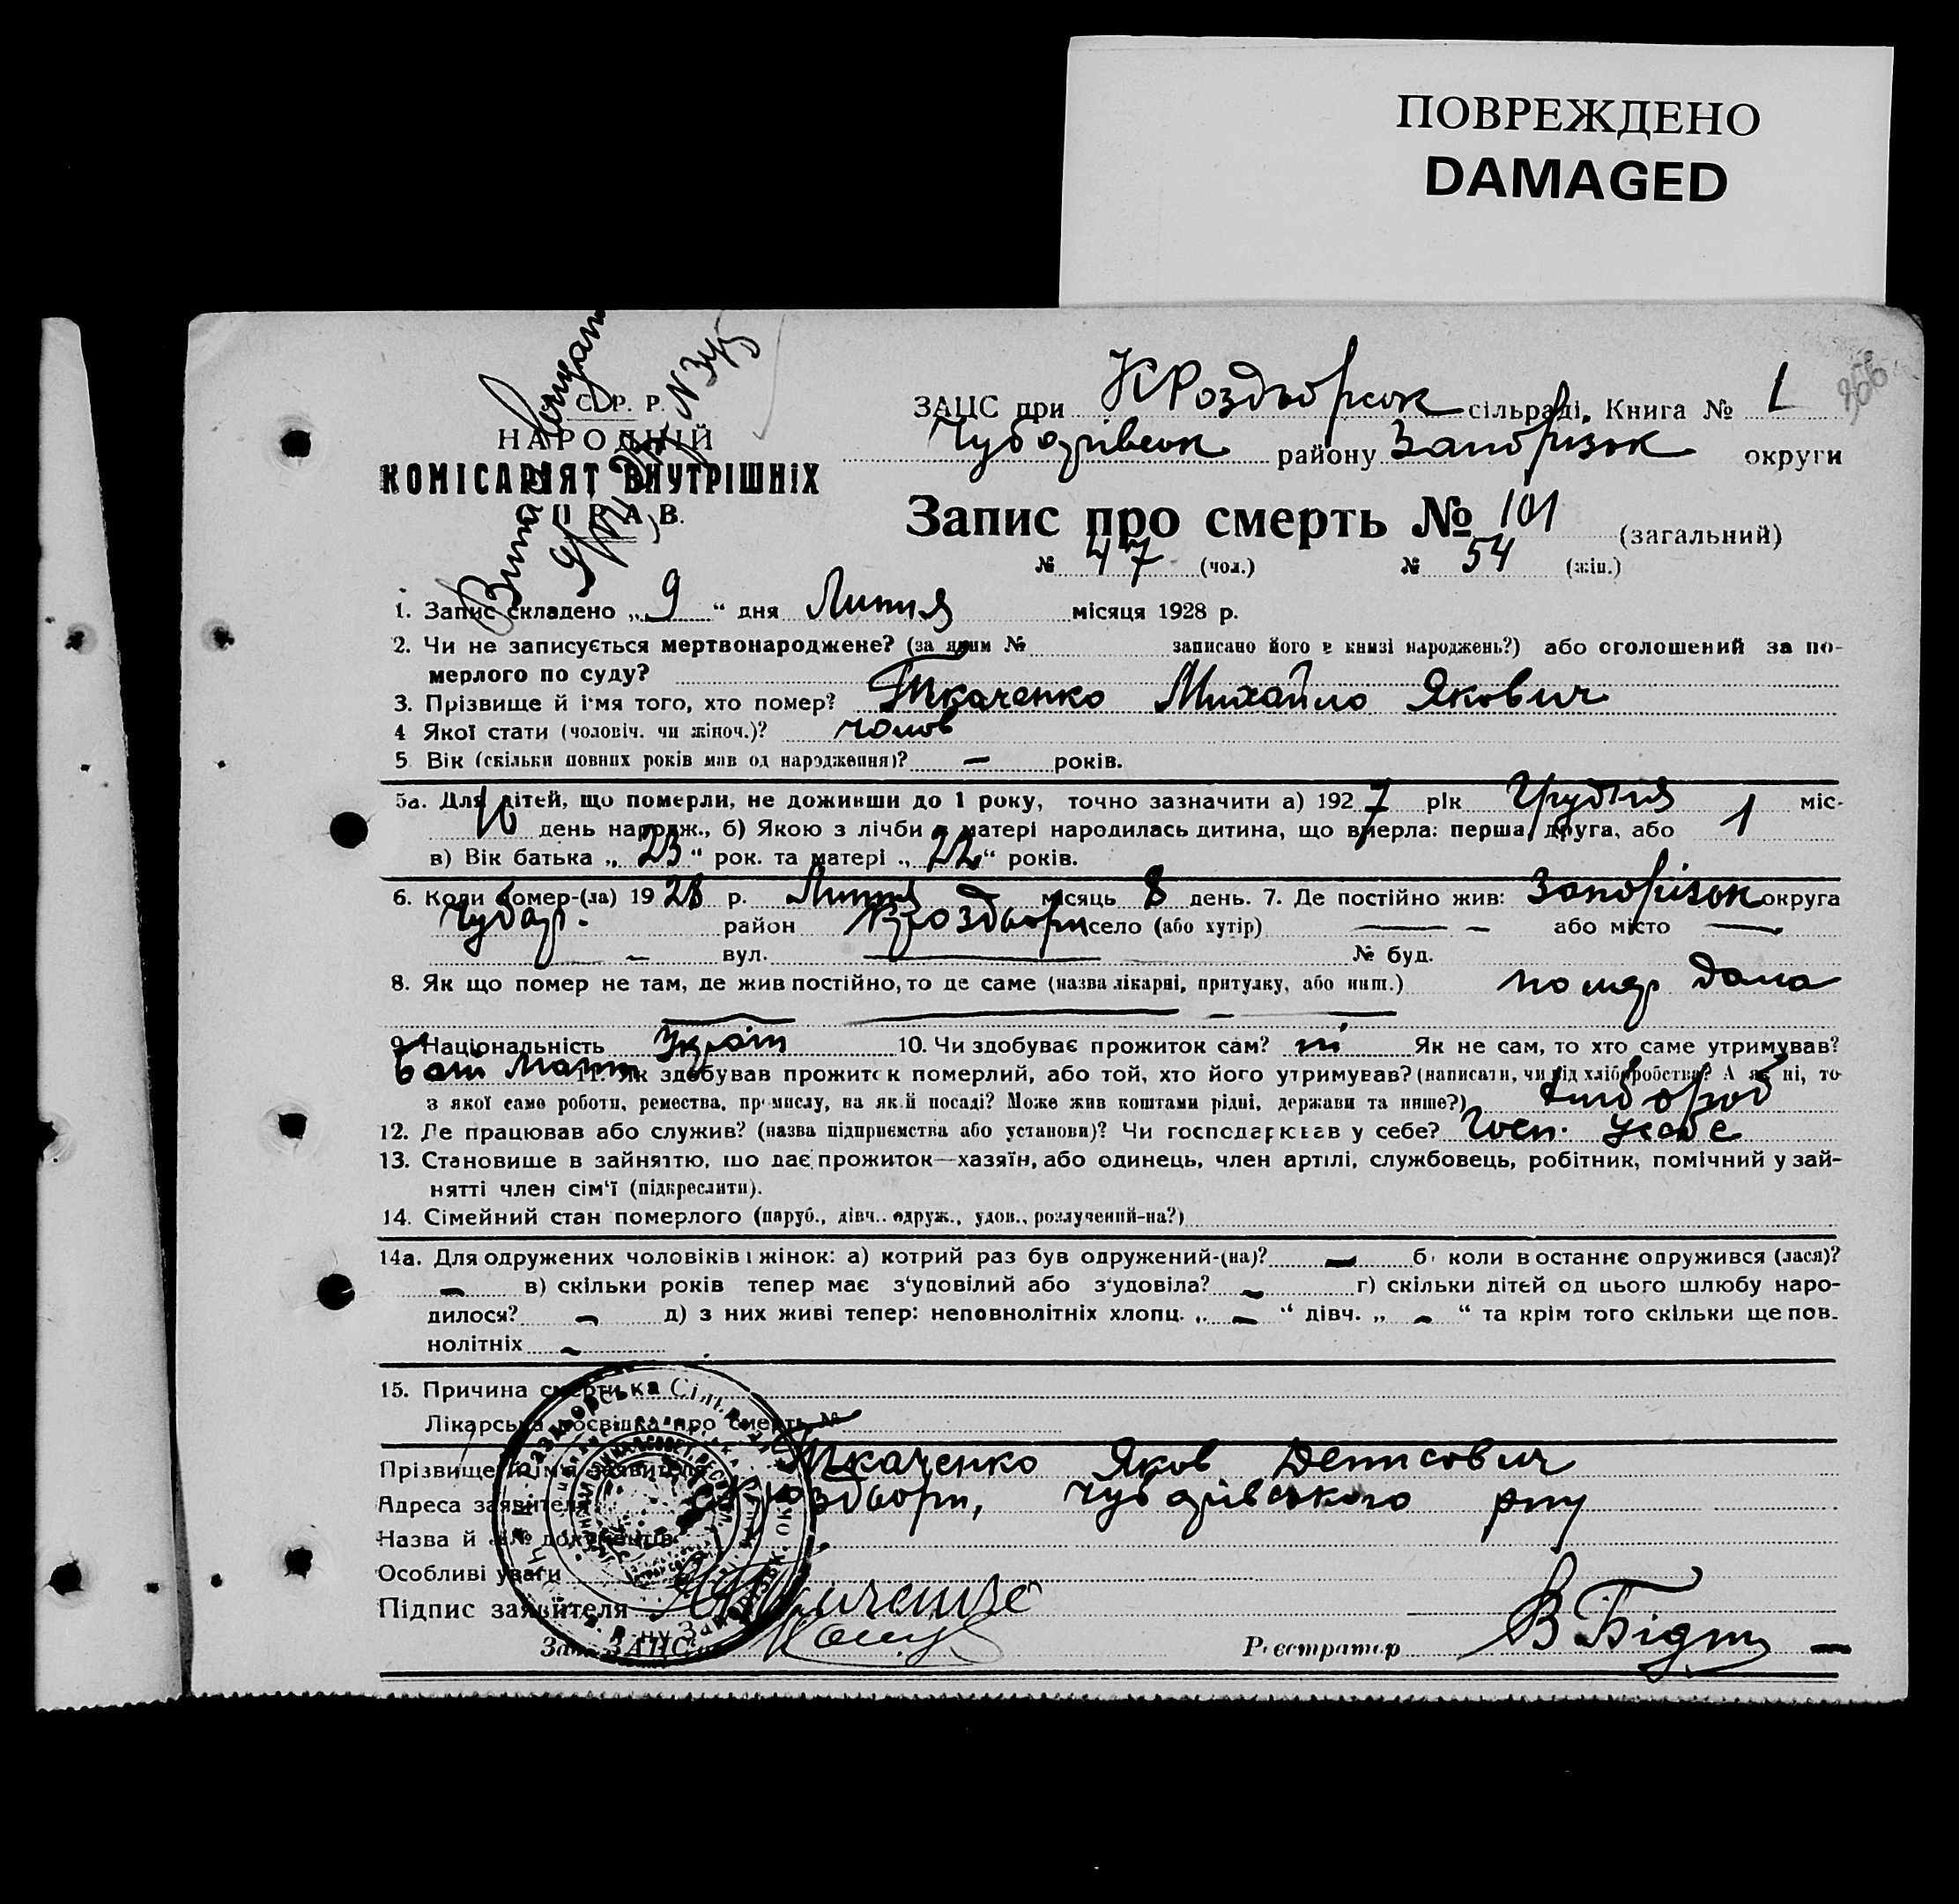 ПОВРЕЖДЕНО
DAMAGED
С. Р. Р.
НАРОДНІЙ
КОМІСАРІЯТ ВНУТРІШНІХ
СПРАВ.
N 345
366
ЗАЦС при К Роздорськ сільраді. Книга № 1
Чубарівськ району Запорізьк округи
Запис про смерть № 101 (загальний)
№ 47 (чол.) № 54 (жін.)
1. Запис складено „ 9 “ дня Липня місяця 1928 р.
2. Чи не записується мертвонароджене? (за яким № записано його в книзі народжень?) або оголошений за по-
мерлого по суду?
3. Прізвище й ім'я того, хто помер? Ткаченко Михайло Якович
4 Якої стати (чоловіч. чи жіноч.)? чолов
5 Вік (скільки повних років мав од народження)? — років.
5а. Для дітей, що померли, не доживши до 1 року, точно зазначити а) 192 7 рік Грудня 1 міс-
день народж., б) Якою з лічби в матері народилась дитина, що вмерла: перша, друга, або 1
в) Вік батька „ 23 “ рок. та матері „ 22 “ років.
6. Коли помер-(ла) 19 28 р. Липня місяць 8 день. 7. Де постійно жив: Запорізьк округа
Чубар. район Кроздори село (або хутір) — - або місто —
— вул. — № буд.
8. Як що помер не там, де жив постійно, то де саме (назва лікарні, притулку, або инш.) помер дома
9. Національність Україн 10. Чи здобуває прожиток сам? ні Як не сам, то хто саме утримував?
бать мати 11. Як здобував прожиток померлий, або той, хто його утримував? (написати, чи від хліборобства? А як ні, то
з якої само роботи, ремества, промислу, на якій посаді? Може жив коштами рідні, держави та инше?) хлібороб
12. Де працював або служив? (назва підприємства або установи)? Чи господарював у себе? Госп. у себе
13. Становище в зайняттю, що дає прожиток—хазяїн, або одинець, член артілі, службовець, робітник, помічний у зай-
нятті член сім'ї (підкреслити).
14. Сімейний стан померлого (паруб., дівч.. одруж., удов., розлучений-на?)
14а. Для одружених чоловіків і жінок: а) котрий раз був одружений-(на)? — б) коли востаннє одружився (лася)?
— в) скільки років тепер має з'удовілий або з'удовіла? — г) скільки дітей од цього шлюбу наро-
дилося? — д) з них живі тепер: неповнолітніх хлопц. „ — “ дівч. „ — “ та крім того скільки ще пов-
нолітніх —
15. Причина смерти
Лікарська посвідка про смерть №
Прізвище й ім'я заявителя Ткаченко Яков Денисович
Адреса заявителя Кроздори, Чубарівського р-ну
Назва й №№ документів
Особливі уваги
Підпис заявителя Ткаченко
Зав. ЗАЦС'ом Реєстратор